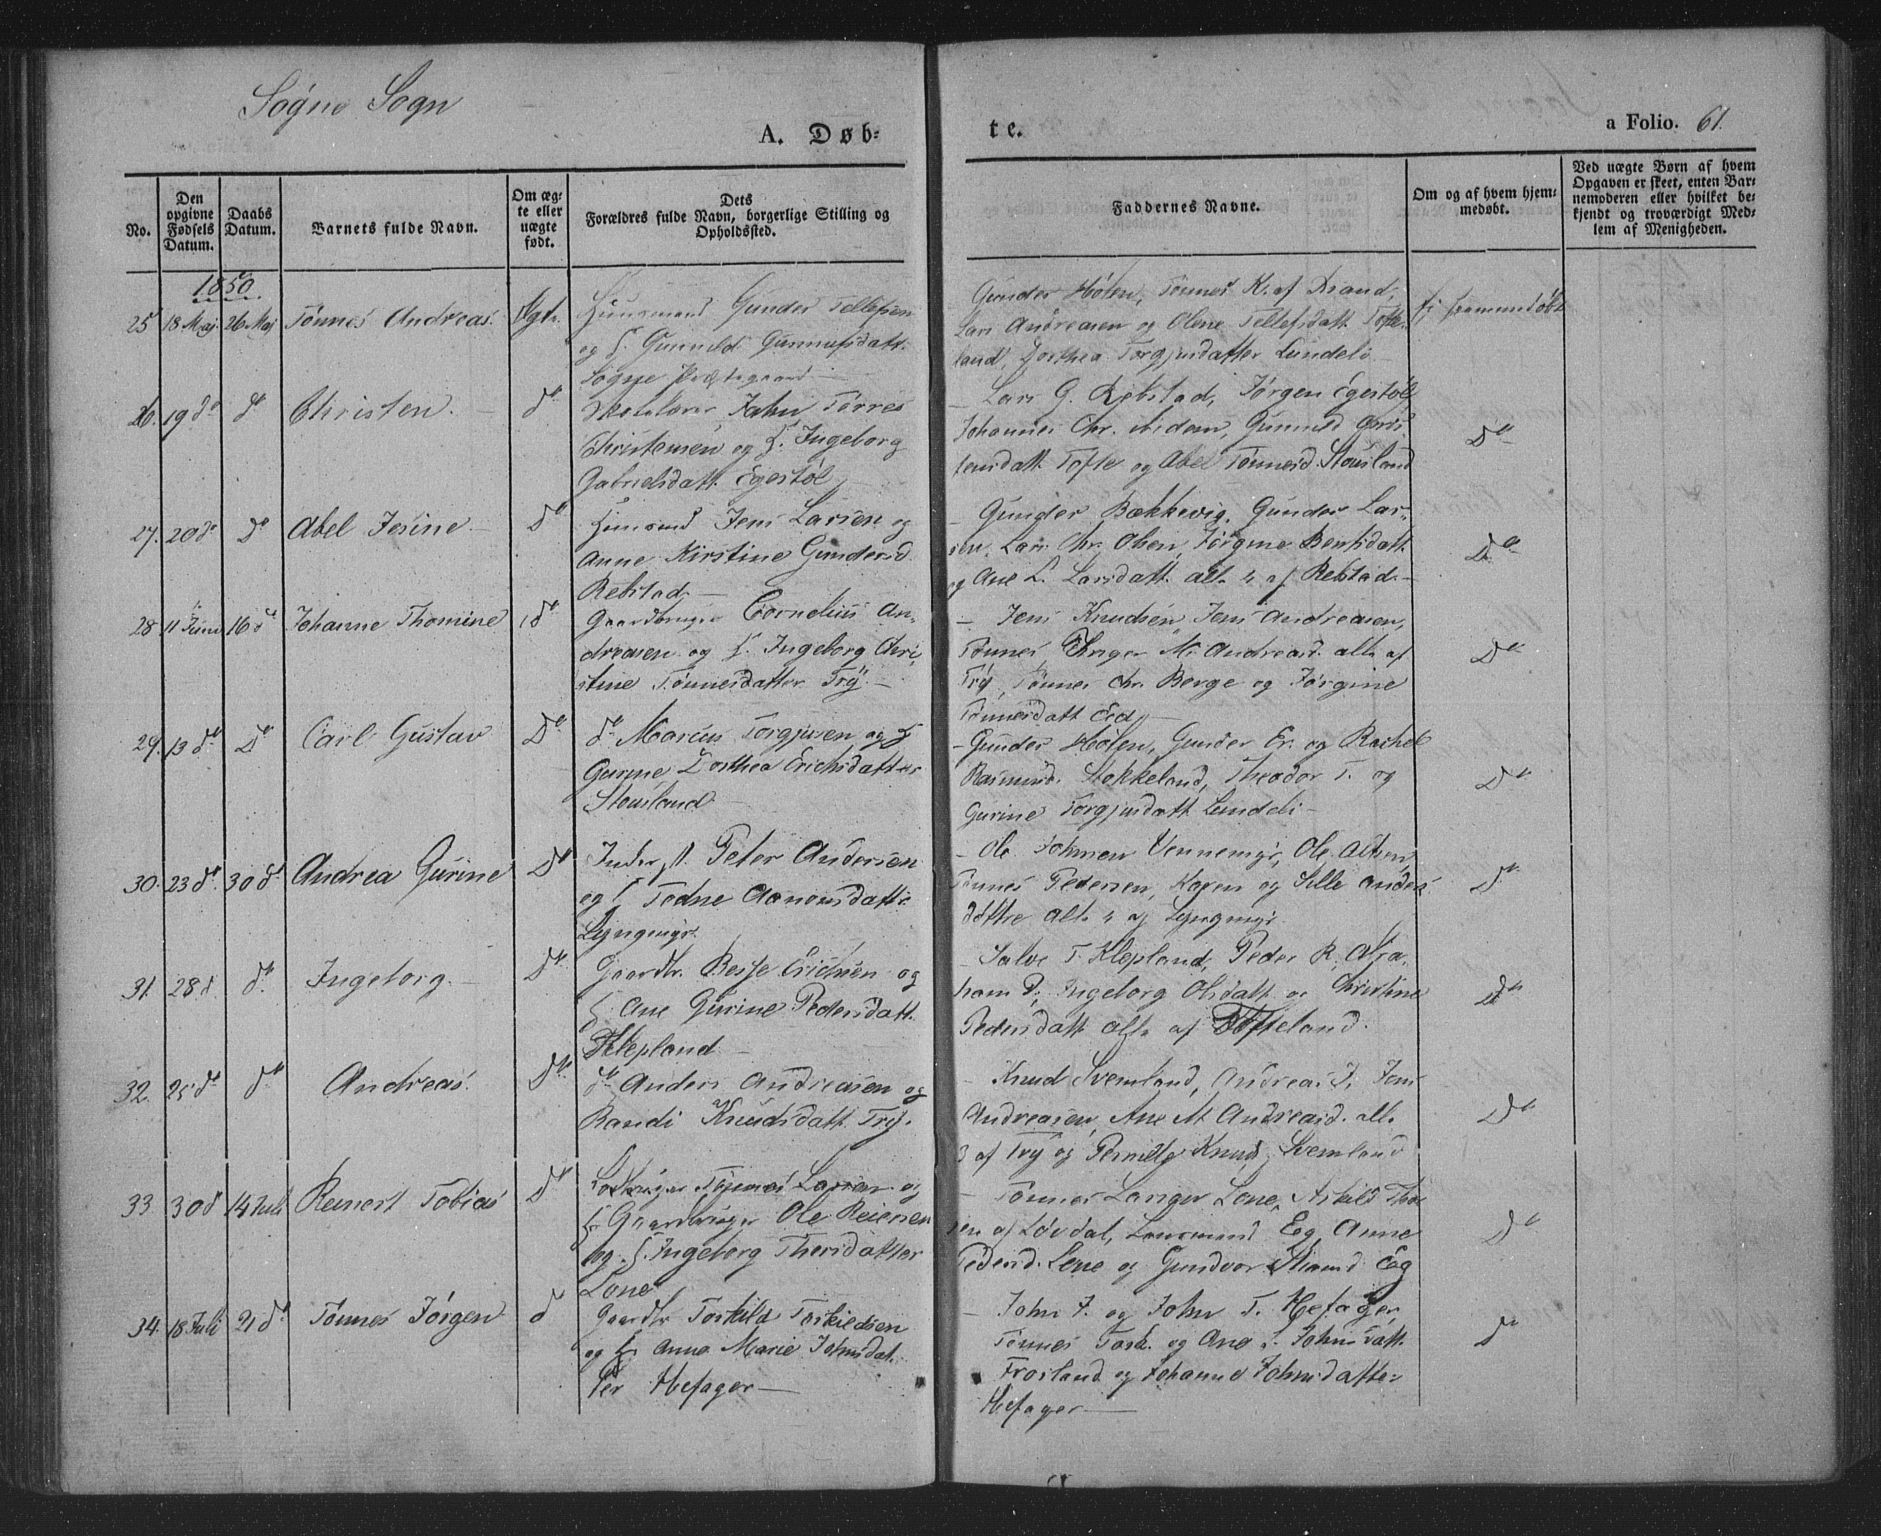 Søgne Sogn
A. Døb-
te.
a Folio. 61.
No.
Den opgivne Fødsels Datum.
Daabs Datum.
Barnets fulde Navn.
Om ægte eller uægte født.
Dets Forældres fulde Navn, borgerlige Stilling og Opholdssted.
Faddernes Navne.
Om og af hvem hjemmedøbt.
Ved uægte Børn af hvem Opgaven er skeet, enten Barnemoderen eller hvilket bekjendt og troværdigt Medlem af Menigheden.
1850.
25 18 Maj 26 Maj Tønnes Andreas. Ægt.
Huusmand Gunder Tellefsen
og H. Gunnild Gunnufsdatt.
Søgne Præstegaard
Gunder Hølen, Tønnes K. af
Lars Andreasen og Olene Tellefsdatt. Tofte-
land, Dorthea Torgjusdatter Lundeli
ei fremmedøbt
26. 19 do do Christen. do
Skolelærer John Tørres
Christensen og H. Ingeborg
Gabrielsdatt. Egestøl
Lars G. Rebstad, Jørgen Egestøl,
Johannes Chr. Gunnild Chris-
tensdatt. Tofte og Abel Tønnesd. Stousland
Do
27. 20 do Do Abel Jesine Do
Huusmd Jens Larsen og
Anne Kirstine Gundersd.
Rebstad
Gunder Bækkevig, Gunder Lar-
sen, Lars Chr. Olsen, Jørgine Bentsdatt.
og Ane L. Larsdatt. alle 4 af Rebstad.
Do
28 11 Juni 16 do Johanne Thomine do
Gaardbruger Cornelius An-
dreasen og H. Ingeborg Chri-
stine Tønnesdatter Trÿ
Jens Knudsen, Jens Andreasen,
Tønnes M. Andreasd. alle af
Trÿ, Tønnes Chr. Berge og Jørgine
Tønnesdatt Eeg
Do
29. 13 do Do Carl Gustav Do
do Marcus Torgjusen og H
Gurine Dorthea Erichsdatter
Stousland
Gunder Hølen, Gunder Er. og Rachel
Rasmusd. Stokkeland, Theodor T. og
Gurine Torgjusdatt Lundeli
Do
30. 23 do 30 do Andrea Gurine Do
Inderst. Peter Andersen
og H Todne Aanonsdatt.
Lyngmyr.
Ole Johnsen Vennemyr, Ole
Tønnes Pedersen, Karen og Sille Anders
døttre alle 4 af Lyngmyr
Do
31. 28 d. do. Ingeborg. Do
Gaardbr. Berge Erichsen og
H. Ane Gurine Pedersdatt.
Klepland
Salve T. Klepland, Peder R., Abra-
ham D., Ingeborg Olsdatt. og Christine
Pedersdatt alle af Tofteland.
do
32. 25 do do Andreas. Do
do Anders Andreasen og
Randi Knudsdatt. Try.
Knud Svenland, Andreas J. Jens
Andreasen, Ane M Andreasd. alle
3 af Try og Pernille Knuds. Svenland
Do
33. 30 d 14 Juli Reinert Tobias Do
Tønnes Larsen og
H Gaardbruger Ole Reiersen
og H. Ingeborg Thorsdatter
Lone
Tønnes Lone, Askild Thor
sen af Løvdal, Lensmand Eeg, Anne
Pedersd. Lone og Gundvor Eeg
Do
34. 18 Juli 21 do Tønnes Jørgen d
Gaardbr Torkild Torkildsen
og H. Anne Marie Johnsdat-
ter Helager
John J. og John T. Helager
Tønnes Tork. og Ane J. Johnsdatt.
Frosland og Johanne Johnsdatter
Helager
Do